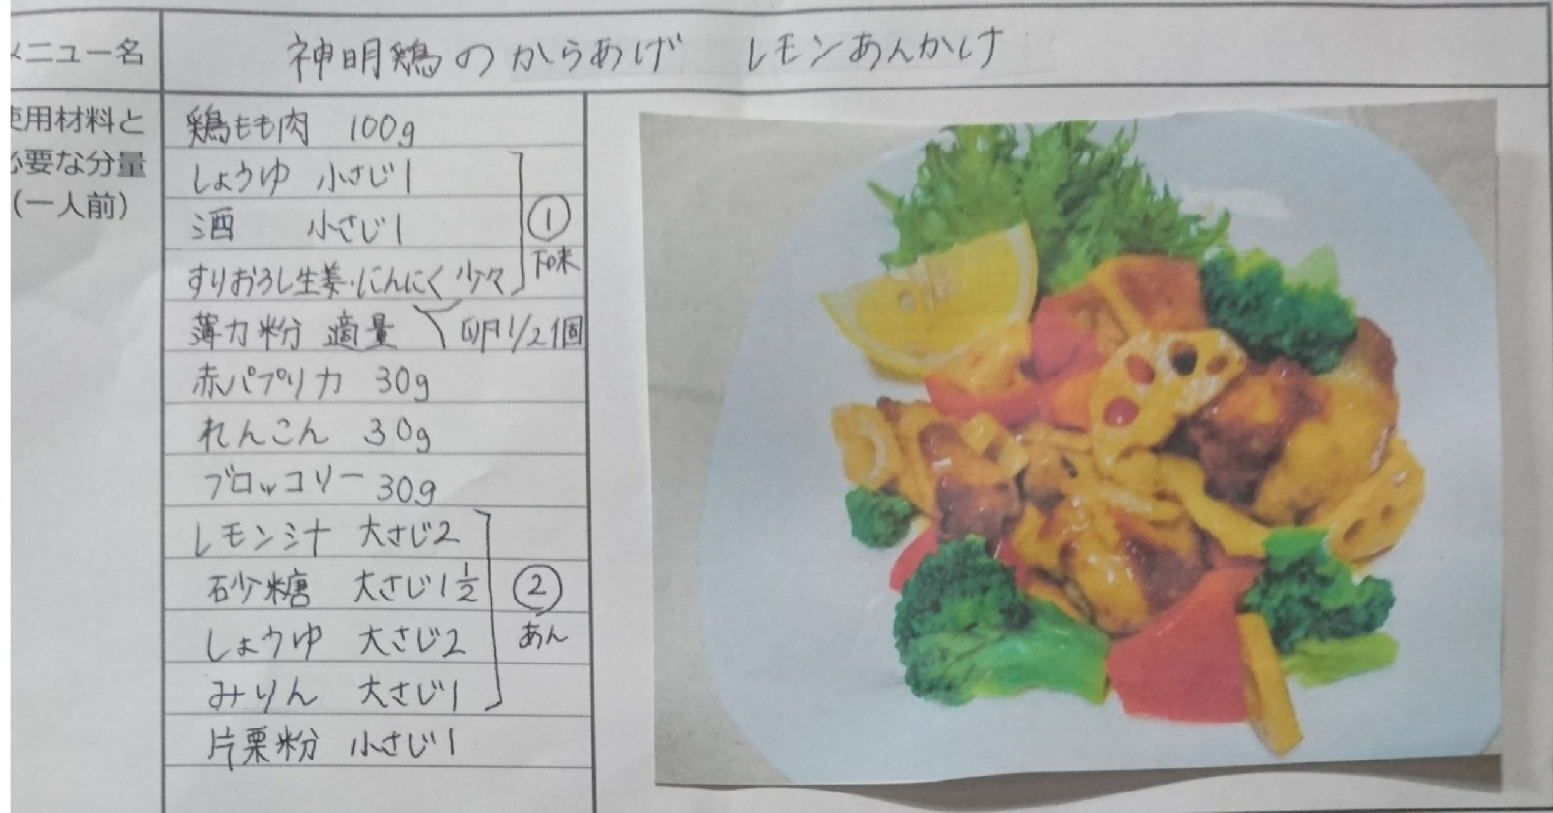 メニュー名
神明鶏のからあげ レモンあんかけ
使用材料と
必要な分量
(一人前)
鶏もも肉 100g
しょうゆ 小さじ1
酒 小さじ1
すりおろし生姜・にんにく 少々
①
下味
薄力粉 適量
卵1/2個
赤パプリカ 30g
れんこん 30g
ブロッコリー 30g
レモン汁 大さじ2
砂糖 大さじ1 1/2
しょうゆ 大さじ2
みりん 大さじ1
②
あん
片栗粉 小さじ1